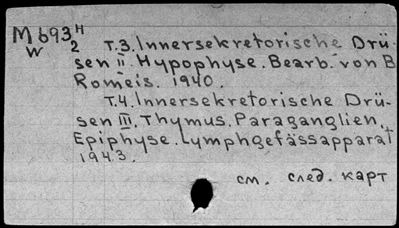 M693 H
W 2 т.3. Innersekretorische Drü-
sen II. Hypophyse. Bearb. von B
Romeis. 1940.
т.4. Innersekretorische Drü-
sen III. Thymus. Paraganglien.
Epiphyse. Lymphgefässapparat
1943.
см. след. карт